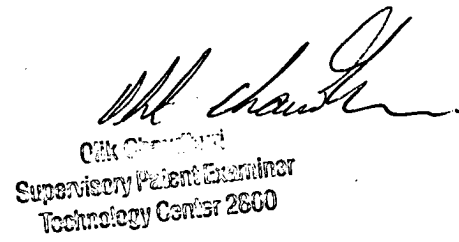 Olik Chaudhuri
Supervisory Patent Examiner
Technology Center 2800